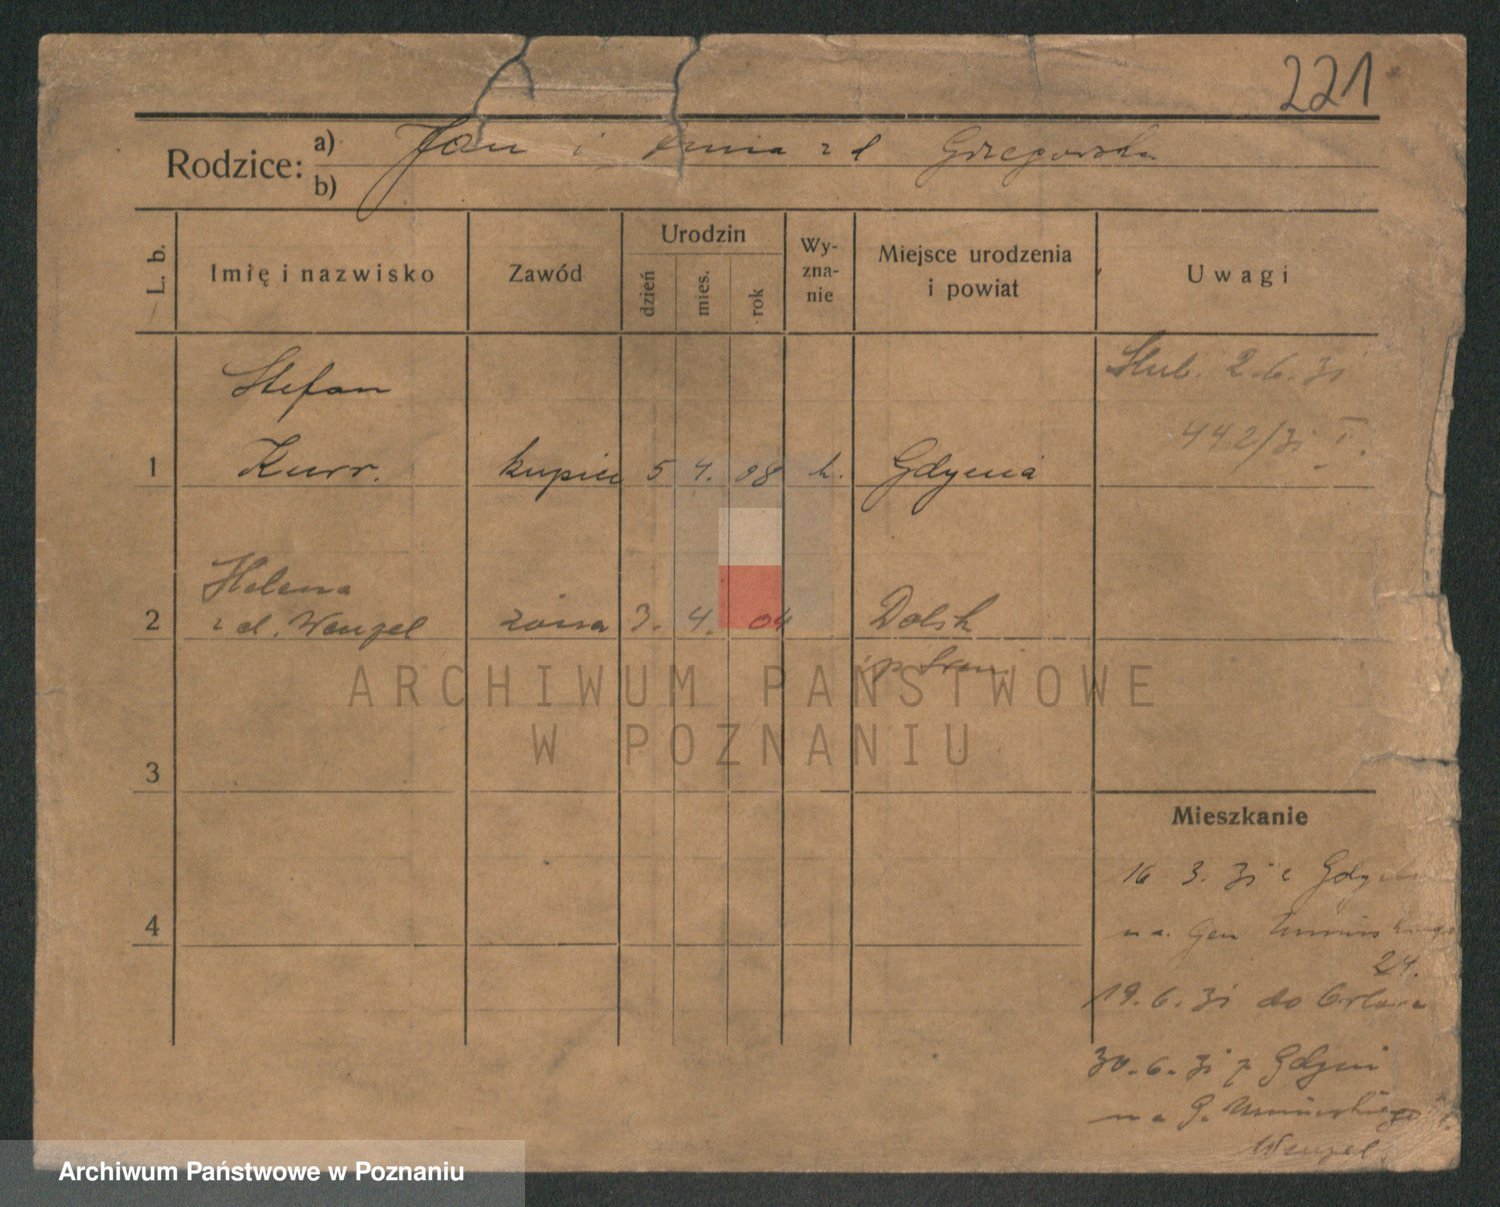 221
Rodzice: a) Jan i Anna z d Grzegorska
b)
L. b. Imię i nazwisko Zawód Urodzin dzień mies. rok Wyzna-nie Miejsce urodzenia i powiat Uwagi
Stefan
Ślub. 2.6.31
442/31 I.
1 Kurr. kupiec 5 4. 08 k. Gdynia
Helena
2 z d. Wenzel żona 3. 4. 04 Dolsk
p Śrem
ARCHIWUM PAŃSTWOWE
W POZNANIU
3
Mieszkanie
16 3. 31 z Gdyni
4
na Gen Umińskiego
24.
19.6.31 do
30.6.31 z Gdyni
na G. Umińskiego
Wenzel.
Archiwum Państwowe w Poznaniu